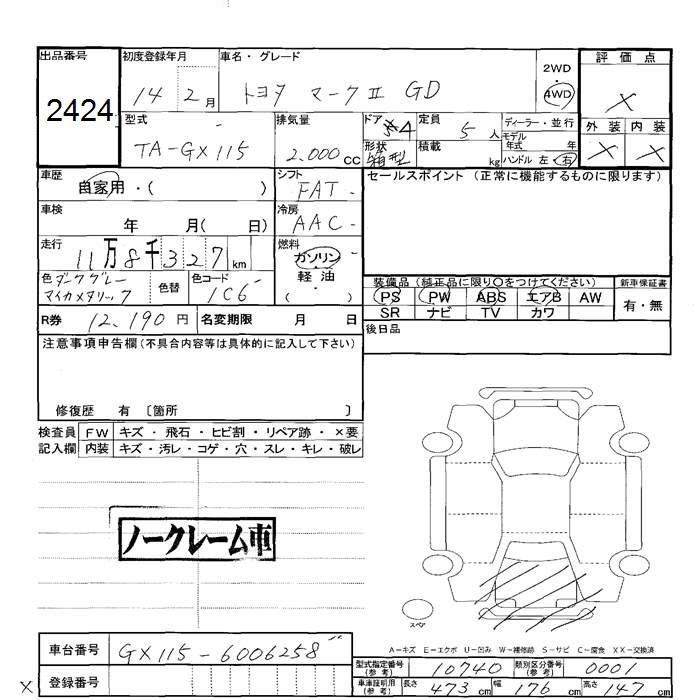 出品番号 初度登録年月 車名・グレード 2WD・4WD 評価点
2424 14 2月 トヨタ マークⅡ GD X
型式 排気量 ドア 定員 ディーラー・並行 外装 内装
TA-GX115 2.000cc 4 5人 モデル年式 年 X X
形状 箱型 積載 kg ハンドル 左・右
車歴 自家用・( ) シフト FAT セールスポイント (正常に機能するものに限ります)
車検 年 月( 日) 冷房 AAC
走行 11万8千327km 燃料 ガソリン・軽油
色 ダークグレーマイカメタリック 色替 色コード 1C6
装備品 (純正品に限り○をつけてください) 新車保証書
PS PW ABS エアB AW 有・無
SR ナビ TV カワ
R券 12.190円 名変期限 月 日 後日品
注意事項申告欄(不具合内容等は具体的に記入して下さい)
修復歴 有 〔箇所 〕
検査員 FW キズ・飛石・ヒビ割・リペア跡・×要
記入欄 内装 キズ・汚レ・コゲ・穴・スレ・キレ・破レ
ノークレーム車
スペア
A－キズ E－エクボ U－凹み W－補修跡 S－サビ C－腐食 XX－交換済
車台番号 GX115-6006258
型式指定番号(参考) 10740 類別区分番号(参考) 0001
X 登録番号
車庫証明用(参考) 長さ 473cm 幅 176cm 高さ 147cm